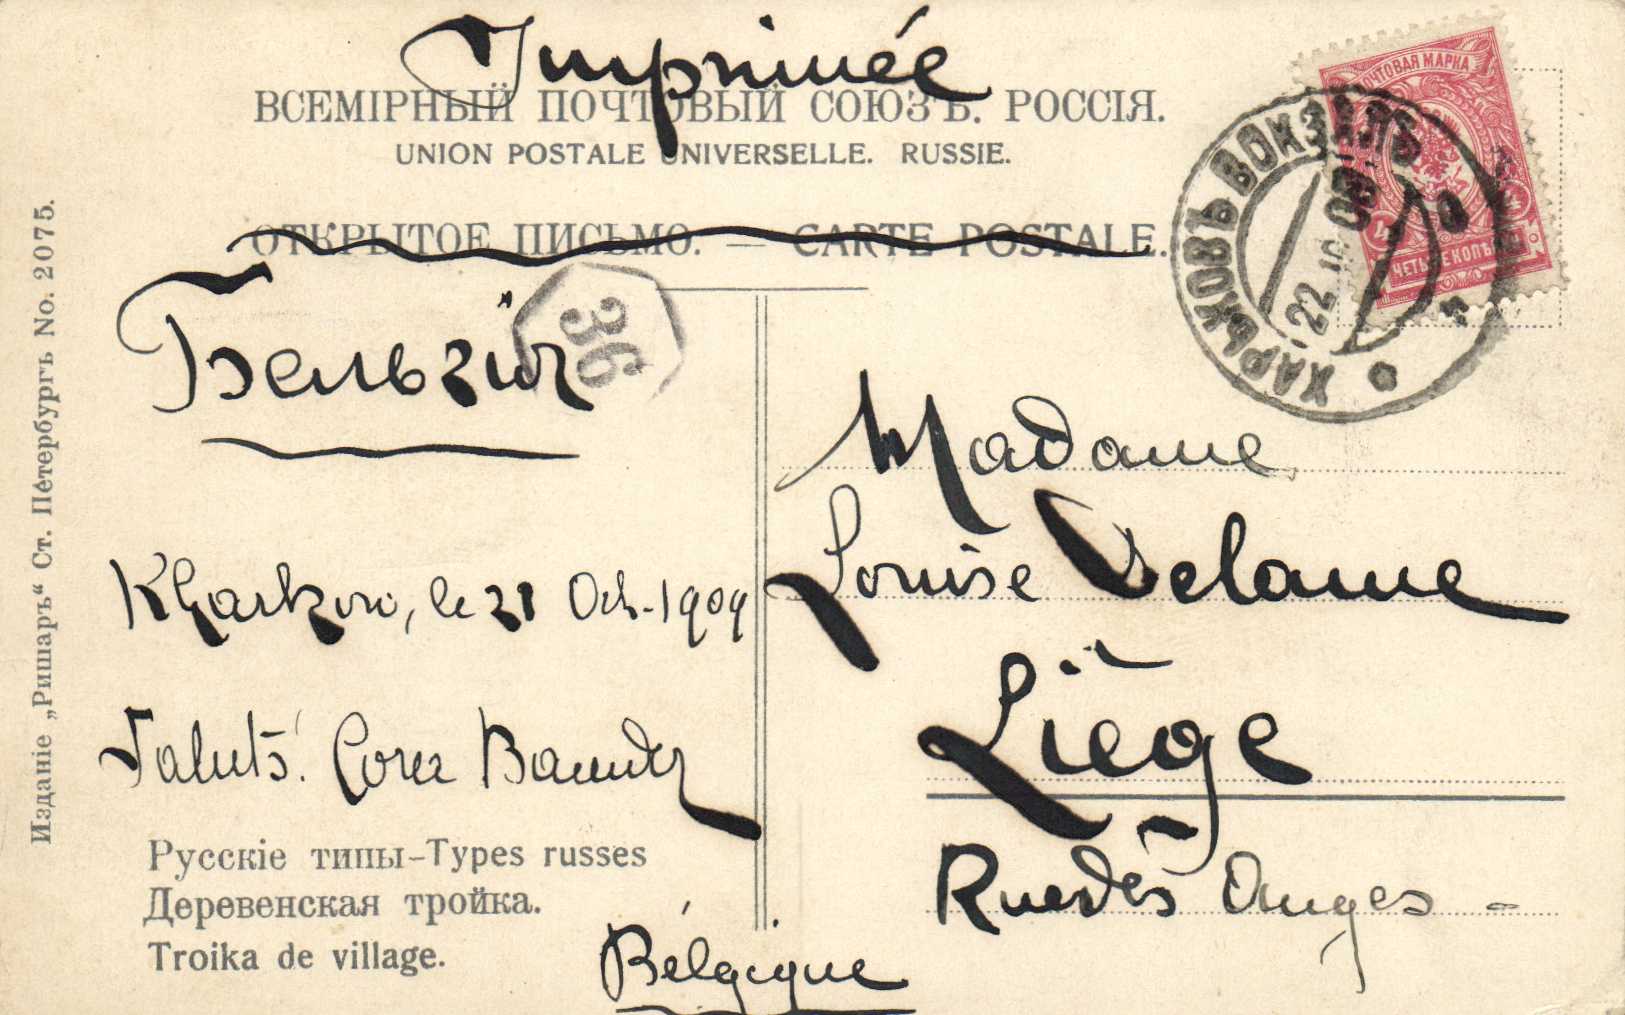 Imprimée
ВСЕМІРНЫЙ ПОЧТОВЫЙ СОЮЗЪ. РОССІЯ.
UNION POSTALE UNIVERSELLE. RUSSIE.
ОТКРЫТОЕ ПИСЬМО. — CARTE POSTALE.
ПОЧТОВАЯ МАРКА
ЧЕТЫРЕ КОП.
ХАРЬКОВЪ ВОКЗАЛЪ
22 10 09
36
Бельгія
Madame
Louise Delame
Liège
Rue des Anges -
Kharkow, le 21 Oct. 1909
Saluts!
Русскіе типы-Types russes
Деревенская тройка.
Troika de village.
Bélgique
Изданіе „Ришаръ“ Ст. Петербургъ No. 2075.